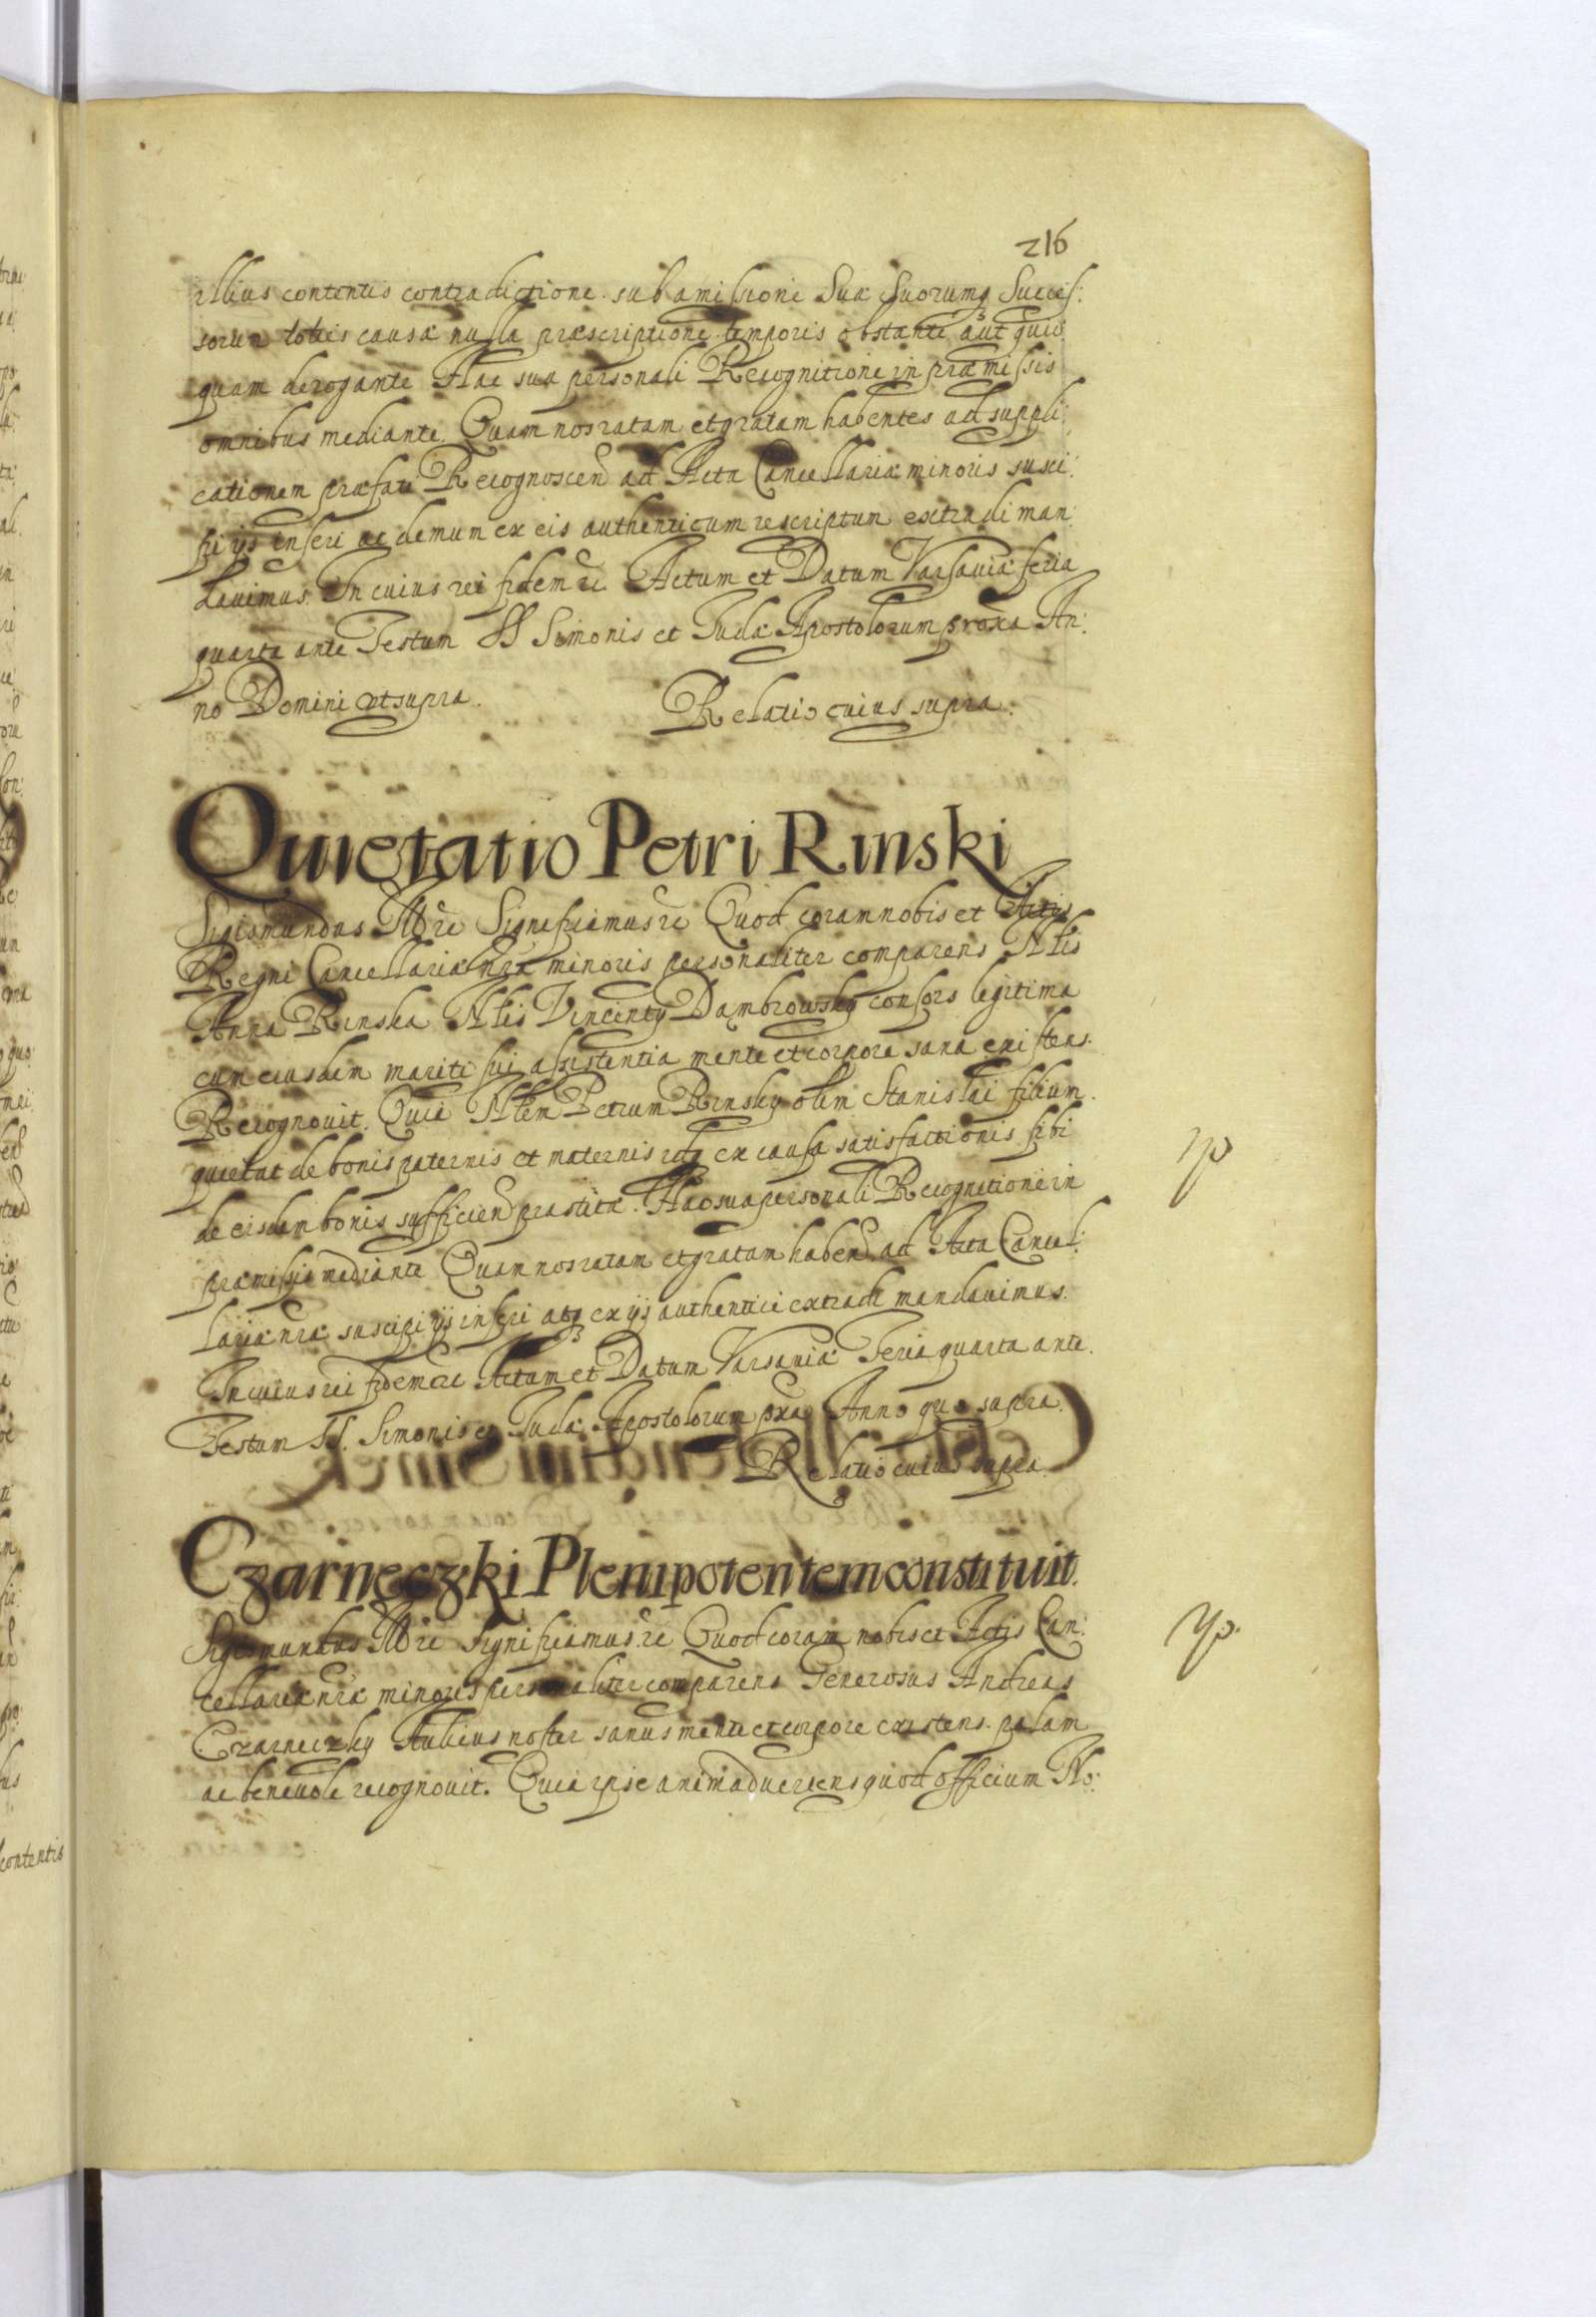 216
illius contentis contradictione sub amissione Suæ Suorumq Succes:
sorum toties causæ nulla præscriptione temporis obstante aut quic
quam derogante Hac sua personali Recognitione in præmissis
omnibus mediante. Quam nos ratam et gratam habentes ad suppli:
cationem præfati Recognoscen ad Acta Cancellariæ minoris susci:
pi ijs inseri ac demum ex eis authenticum rescriptum extradi man:
davimus. In cuius rei fidem &c Actum et Datum Varsaviæ feria
quarta ante Festum SS Simonis et Judæ Apostolorum proxa An:
no Domini ut supra. Relatio cuius supra.
Quietatio Petri Rinski
Sigismundus III &c Significamus &c Quod coram nobis et Actis
Regni Cancellariæ nræ minoris personaliter comparens Nlis
Anna Rinska Nlis Vincentij Dambrowsky consors legitima
cum eiusdem mariti sui assistentia mente et corpore sana existens.
Recognovit. Quia Nlem Petrum Rinsky olim Stanislai filium.
quietat de bonis paternis et maternis idq ex causa satisfactionis sibi
de eisdem bonis sufficien præstitæ. Hac sua personali Recognitione in
præmissis mediante Quam nos ratam et gratam haben ad Acta Cancel:
lariæ nræ suscipi ijs inseri atq ex ijs authentice extradi mandavimus.
In cuius rei fidem &c Actum et Datum Varsaviæ Feria quarta ante.
Festum SS. Simonis et Judæ Apostolorum pxa Anno quo supra.
Relatio cuius supra.
Czarneczki Plenipotentem constituit.
Sigismundus III &c Significamus &c Quod coram nobis et Actis Can:
cellariæ nræ minoris personaliter comparens Generosus Andreas
Czarneczky Aulicus noster sanus mente et corpore existens. palam
ac benevole recognovit. Quia ipse animadvertens quod officium No: